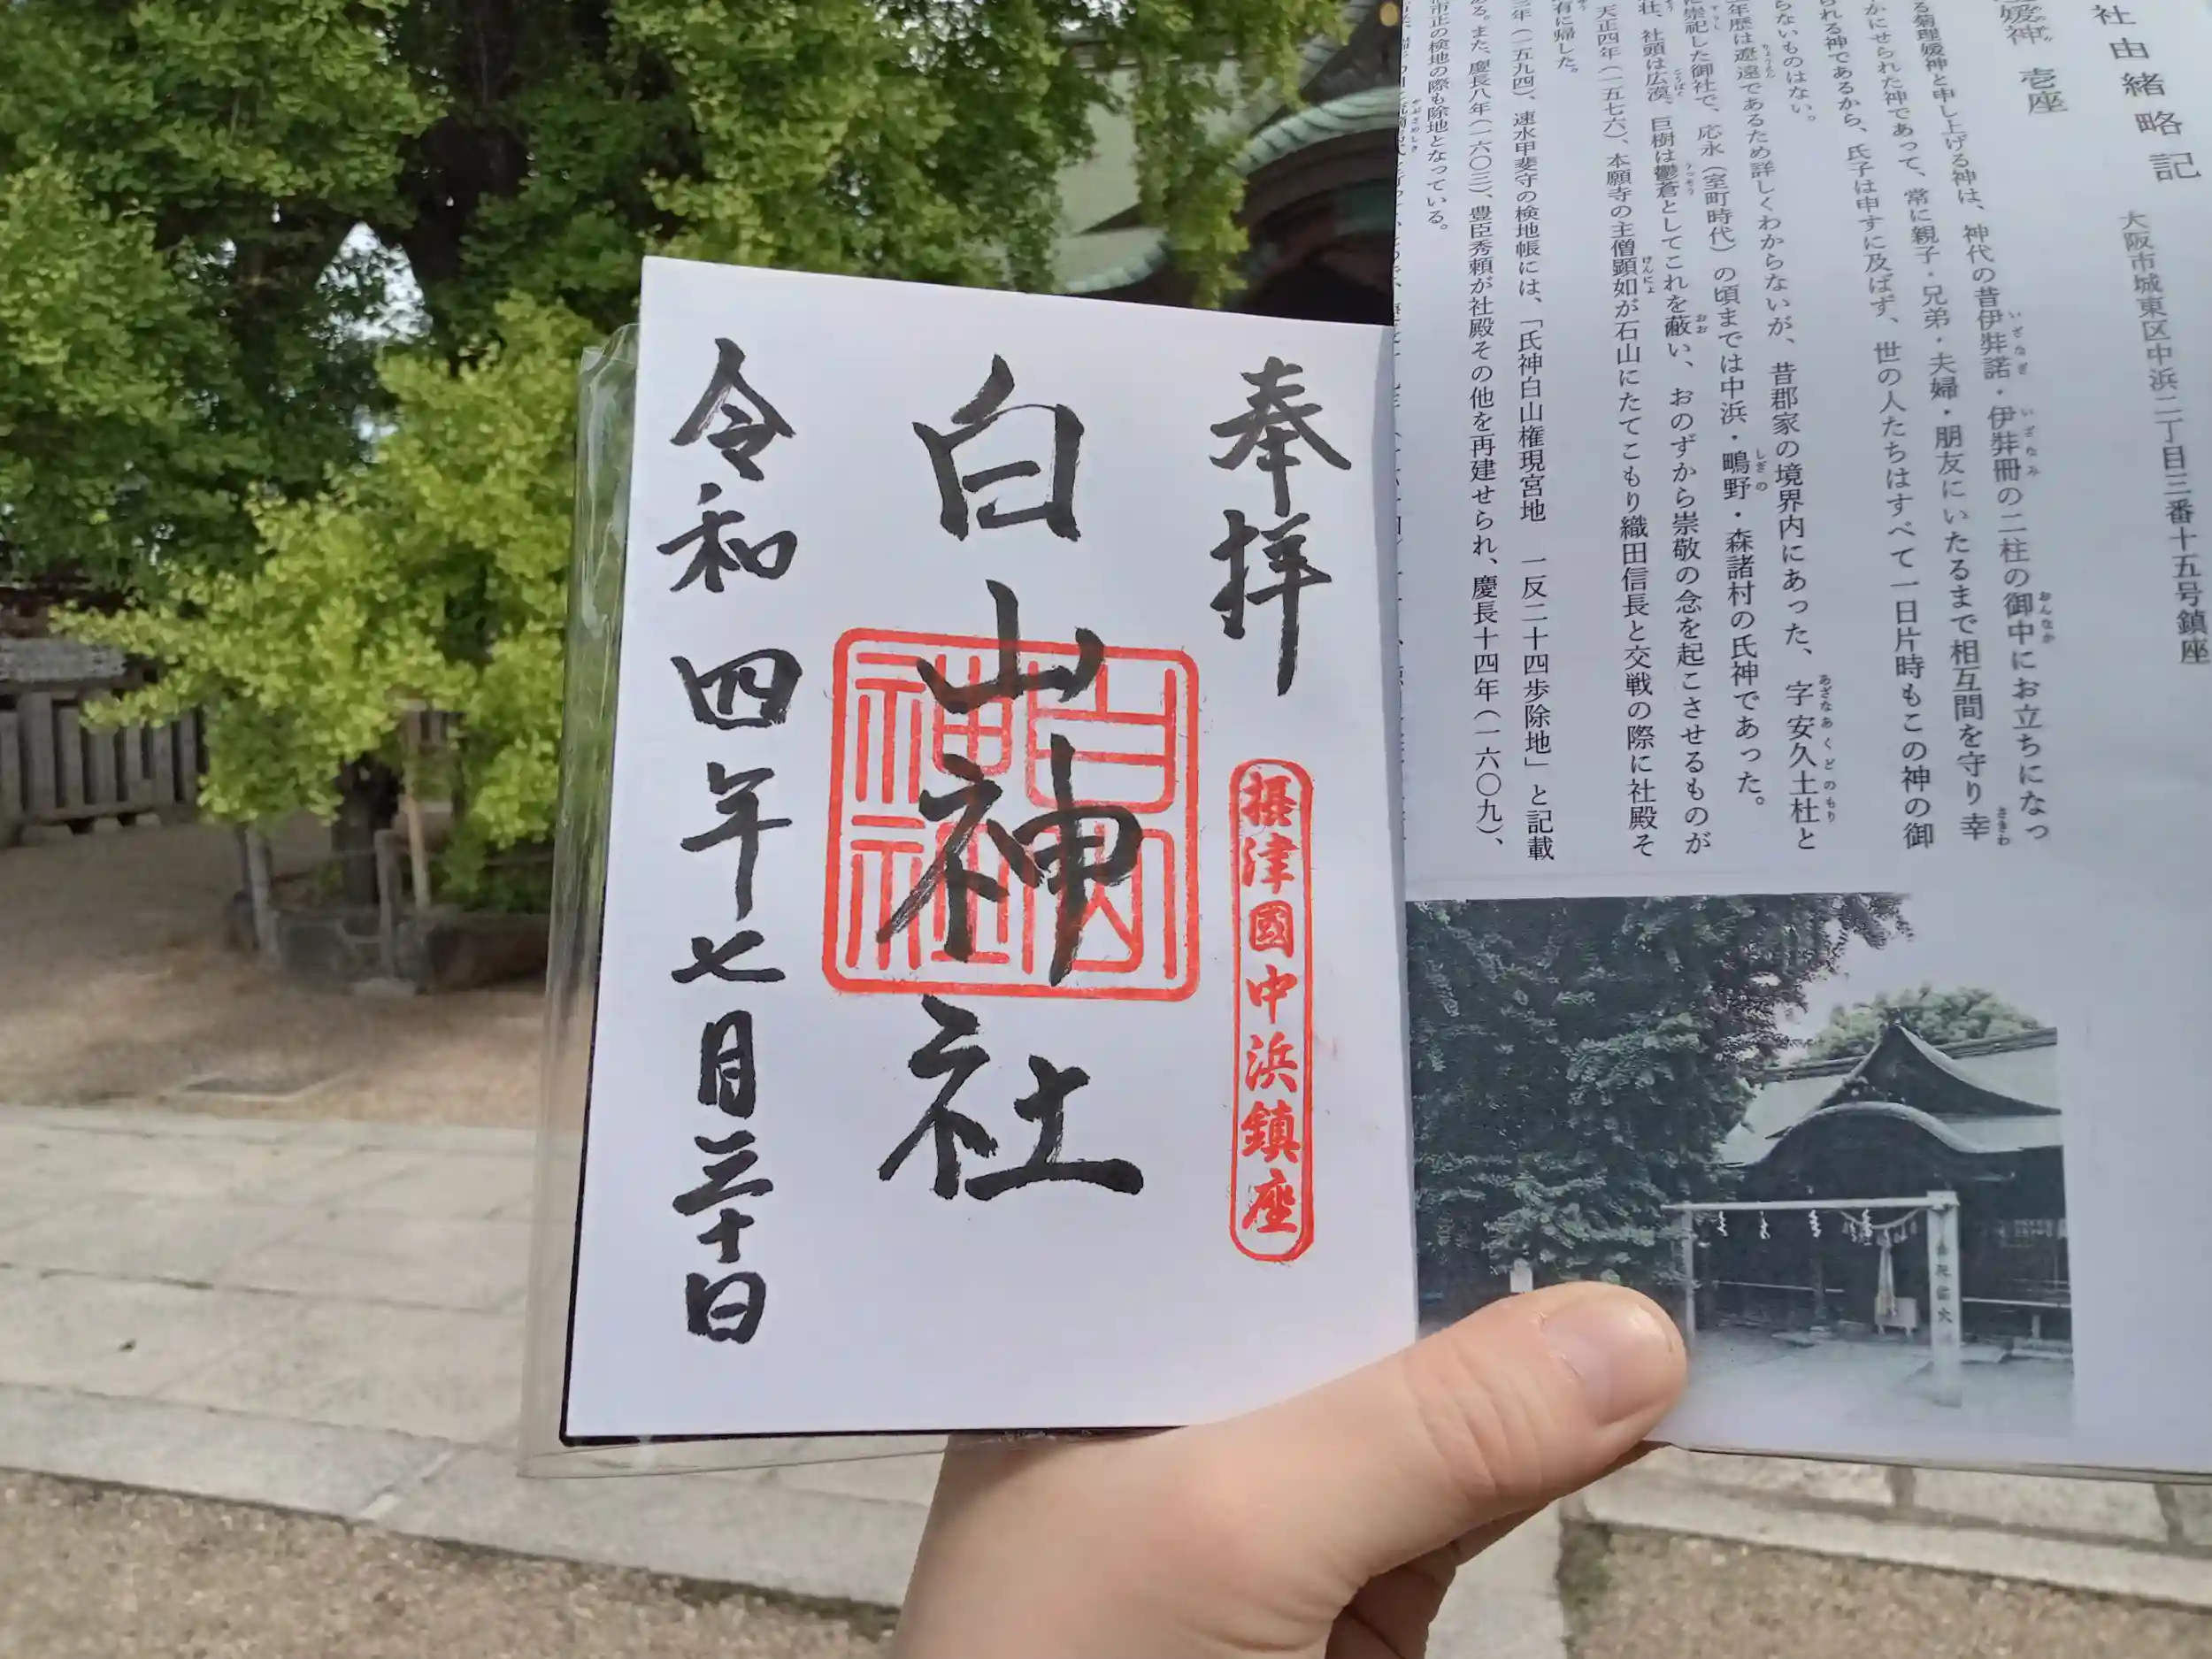 社由緒略記
大阪市城東区中浜二丁目三番十五号鎮座
媛神 壱座
る菊理媛神と申し上げる神は、神代の昔伊弉諾・伊弉冊の二柱の御中にお立ちになっ
かにせられた神であって、常に親子・兄弟・夫婦・朋友にいたるまで相互間を守り幸
られる神であるから、氏子は申すに及ばず、世の人たちはすべて一日片時もこの神の御
らないものはない。
年歴は遼遠であるため詳しくわからないが、昔郡家の境界内にあった、字安久土杜と
に崇祀した御社で、応永(室町時代)の頃までは中浜・鴫野・森諸村の氏神であった。
壮、社頭は広漠、巨樹は鬱蒼としてこれを蔽い、おのずから崇敬の念を起こさせるものが
天正四年(一五七六)、本願寺の主僧顕如が石山にたてこもり織田信長と交戦の際に社殿そ
有に帰した。
年(一五九四)、速水甲斐守の検地帳には、「氏神白山権現宮地 一反二十四歩除地」と記載
る。また、慶長八年(一六〇三)、豊臣秀頼が社殿その他を再建せられ、慶長十四年(一六〇九)、
市正の検地の際も除地となっている。
奉拝
摂津國中浜鎮座
白山神社
白山神社
令和四年七月三十日